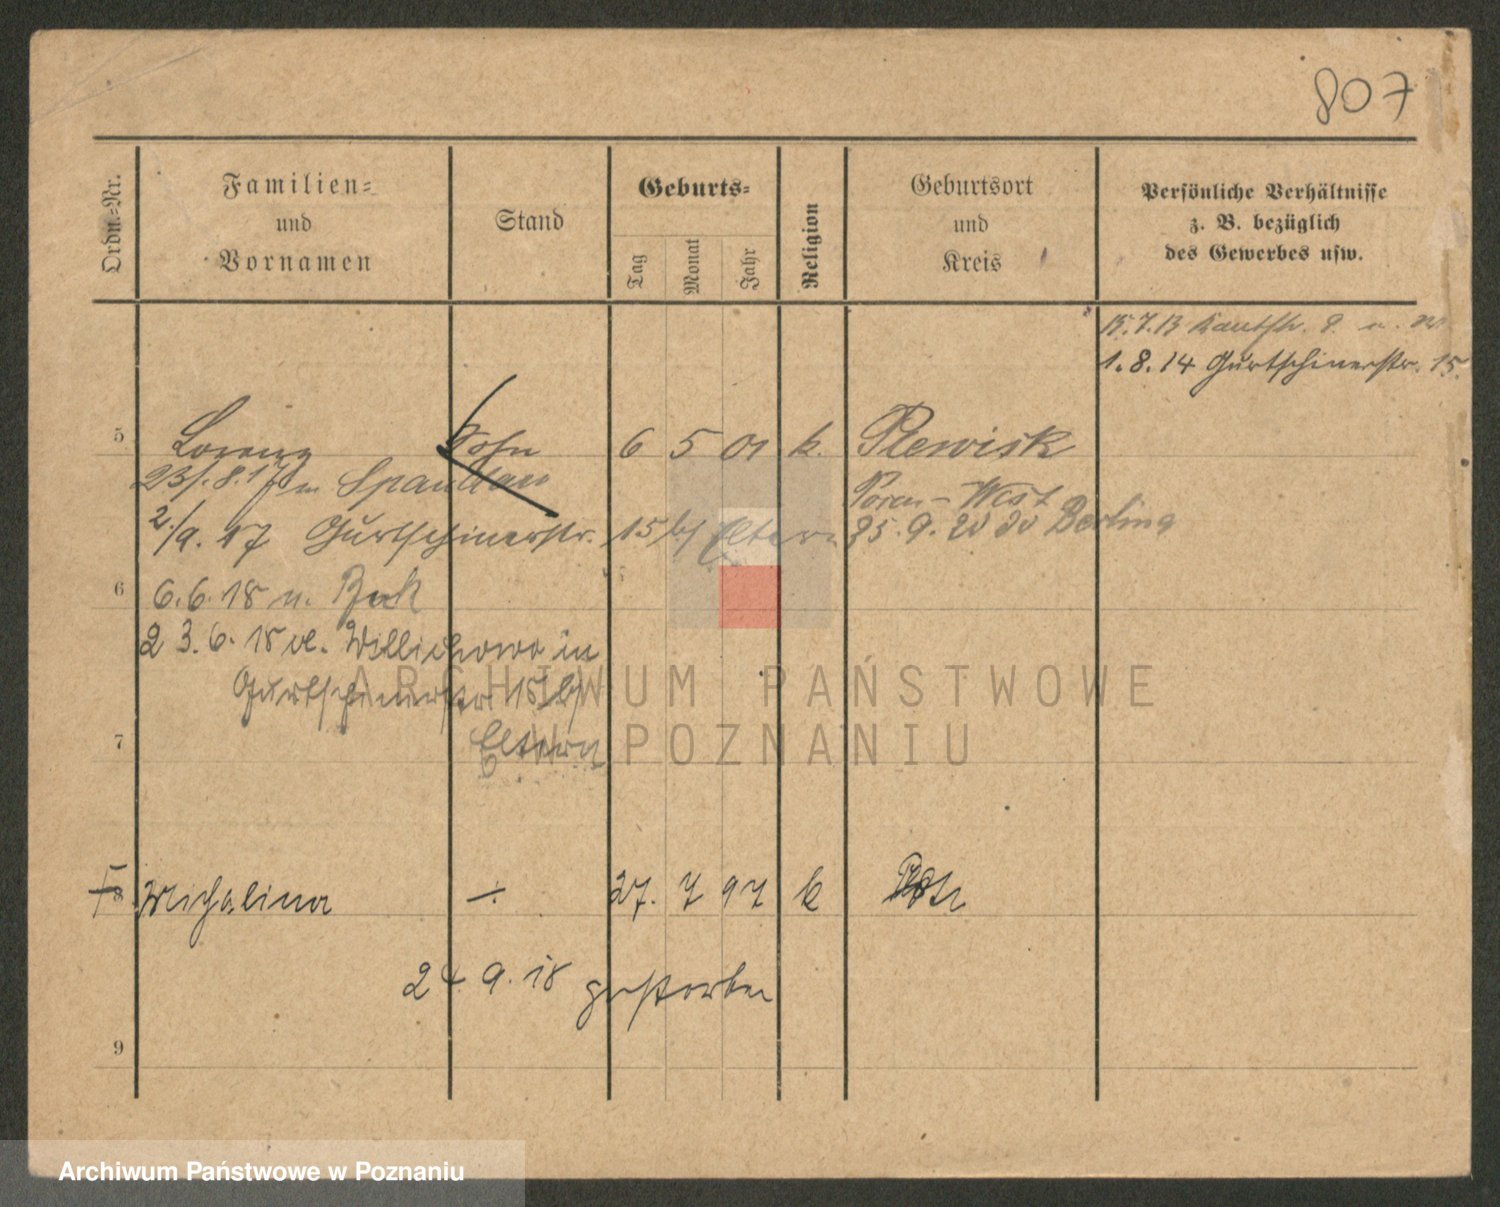 807
Ordn.-Nr.
Familien-
und
Vornamen
Stand
Geburts-
Tag
Monat
Jahr
Religion
Geburtsort
und
Kreis
Persönliche Verhältnisse
z. B. bezüglich
des Gewerbes usw.
15.7.13 Kantstr.
1.8.14 Gurtschinerstr. 15.
5 Lorenz Sohn 6 5 01 k. Plewisk
23/.8.17 Spandau
Posen-West
2./9.17 Gurtschinerstr. 15 b/ Eltern
25.9.20 Berlin
6 6.6.18 n. Buk
23.6.18 Wilkichowo in
Gurtschinerstr. 15 b/
Eltern
7
8 Michalina ÷ 27. 7 97 k
24.9.18 gestorben
9
ARCHIWUM PAŃSTWOWE
W POZNANIU
Archiwum Państwowe w Poznaniu